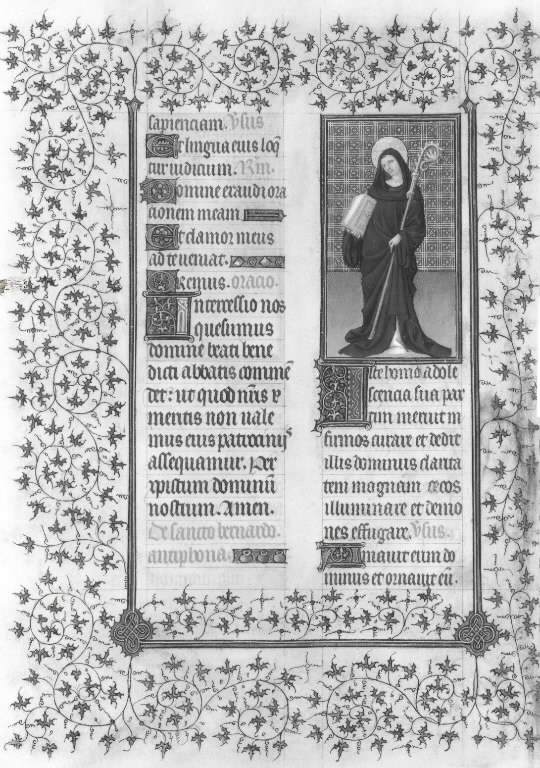 sapienciam. Vsus
Et lingua eius loq̄
tur iudicium. R̄m.
Domine exaudi ora
cionem meam
Et clamor meus
ad te veniat.
Oremus. oracio.
Intercessio nos
quesumus
domine beati bene
dicti abbatis commēn
det: ut quod nr̄is
meritis non vale
mus eius patrocinijs
assequamur. Per
xpistum dominū
nostrum. Amen.
De sancto bernardo.
antiphona.
Iste homo ab adole
scencia sua par
tum meruit in
firmos curare et dedit
illis dominus clarita
tem magnam cecos
illuminare et demo
nes effugare. Vsus.
Amauit eum do
minus et ornauit eū.